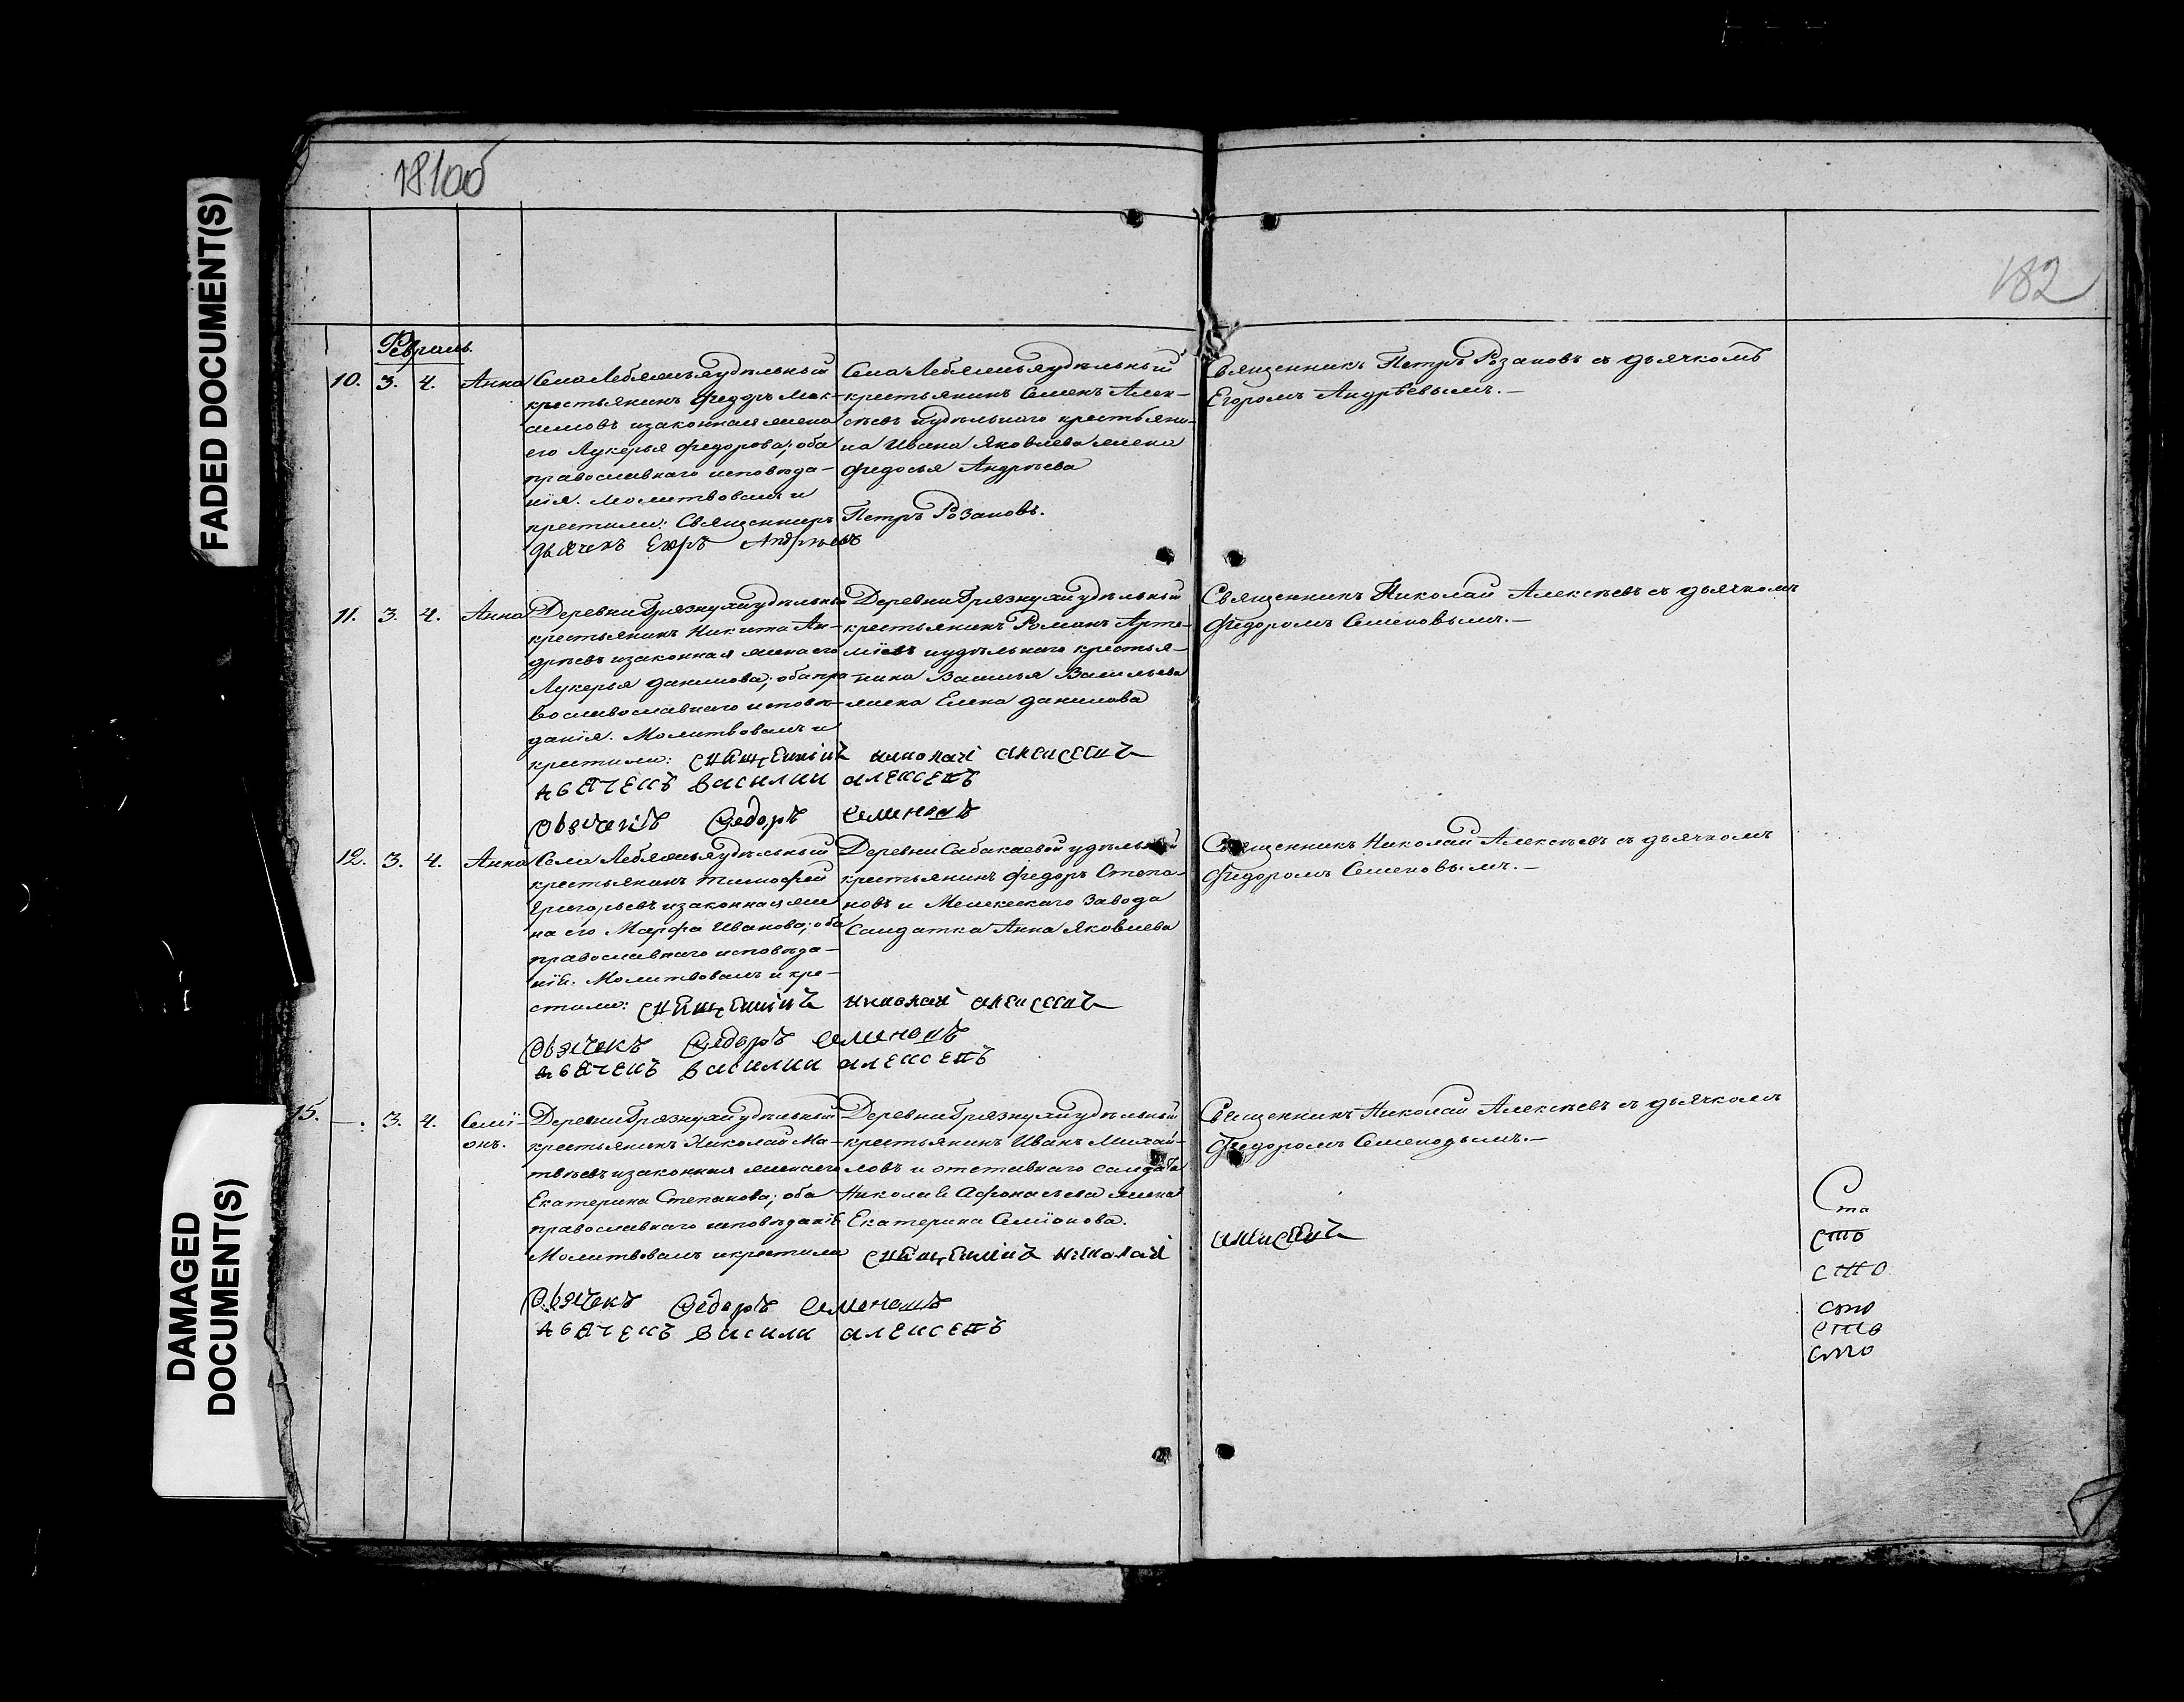 FADED DOCUMENT(S)
DAMAGED DOCUMENT(S)
181об
182
Февраль.
10. 3. 4. Анна
Села Лебяжья удѣльный
крестьянинъ Федоръ Мак-
симовъ и законная жена
его Лукерья Федорова; оба
православнаго исповѣда-
нія. Молитвовалъ и
крестили: Священникъ Петръ Розановъ.
Дьячекъ Егоръ Андреевъ
Села Лебяжья удѣльный
крестьянинъ Семенъ Алек-
сѣевъ и удѣльнаго крестьяни-
на Ивана Яковлева жена
Федосья Андрѣева
Священникъ Петръ Розановъ съ дьячкомъ
Егоромъ Андрѣевымъ.—
11. 3. 4. Анна
Деревни Грязнухи удѣльный
крестьянинъ Никита Ан-
дрѣевъ и законная жена его
Лукерья Данилова; оба пра-
вославославнаго исповѣ-
данія. Молитвовалъ и
крестили: священникъ николай алексеевъ
дьячекъ василии алексеевъ
Дьячекъ Федоръ Семеновъ
Деревни Грязнухи удѣльный
крестьянинъ Романъ Арте-
міевъ и удѣльнаго крестья-
нина Василья Васильева
жена Елена Данилова
Священникъ Николай Алексѣевъ съ дьячкомъ
Федоромъ Семеновымъ.—
12. 3. 4. Анна
Села Лебяжья удѣльный
крестьянинъ Тимофей
Григорьевъ и законная же
на его Марфа Иванова; оба
православнаго исповѣда-
нія. Молитвовалъ и кре-
стили: священникъ николай алексеевъ
Дьячекъ Федоръ Семеновъ
дьячекъ василии алексеевъ
Деревни Сабакаевой удѣльный
крестьянинъ Федоръ Степа-
новъ и Мелекескаго Завода
Салдатка Анна Яковлева
Священникъ Николай Алексѣевъ съ дьячкомъ
Федоромъ Семеновымъ.—
15. — 3. 4. Семі-
онъ.
Деревни Грязнухи удѣльный
крестьянинъ Николай Ма-
твѣевъ и законная жена его
Екатерина Степанова; оба
православнаго исповѣданія
Молитвовалъ и крестили священникъ николай алексеевъ
Дьячекъ Федоръ Семеновъ
дьячекъ васили алексеевъ
Деревни Грязнухи удѣльный
крестьянинъ Иванъ Михай-
ловъ и отставнаго салдата
Николая Афонасьева жена
Екатерина Семіонова.
Священникъ Николай Алексѣевъ съ дьячкомъ
Федоромъ Семеновымъ.—
Ста
сто
сто
сто
сто
сто